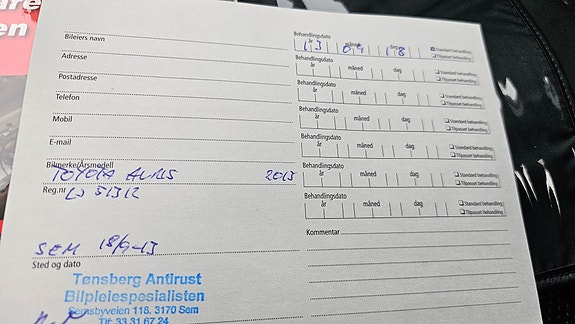 are
en
Bileiers navn
Adresse
Postadresse
Telefon
Mobil
E-mail
Bilmerke/Årsmodell
TOYOTA AURIS 2013
Reg.nr LJ 51312
SEM 18/9-13
Sted og dato
Tønsberg Antirust
Bilpleiespesialisten
Semsbyveien 118, 3170 Sem
Tlf: 33 31 67 24
Behandlingsdato
år måned dag
13 09 18
Standard behandling
Tilpasset behandling
Behandlingsdato
år måned dag
Standard behandling
Tilpasset behandling
Behandlingsdato
år måned dag
Standard behandling
Tilpasset behandling
Behandlingsdato
år måned dag
Standard behandling
Tilpasset behandling
Behandlingsdato
år måned dag
Standard behandling
Tilpasset behandling
Behandlingsdato
år måned dag
Standard behandling
Tilpasset behandling
Behandlingsdato
år måned dag
Standard behandling
Tilpasset behandling
Kommentar